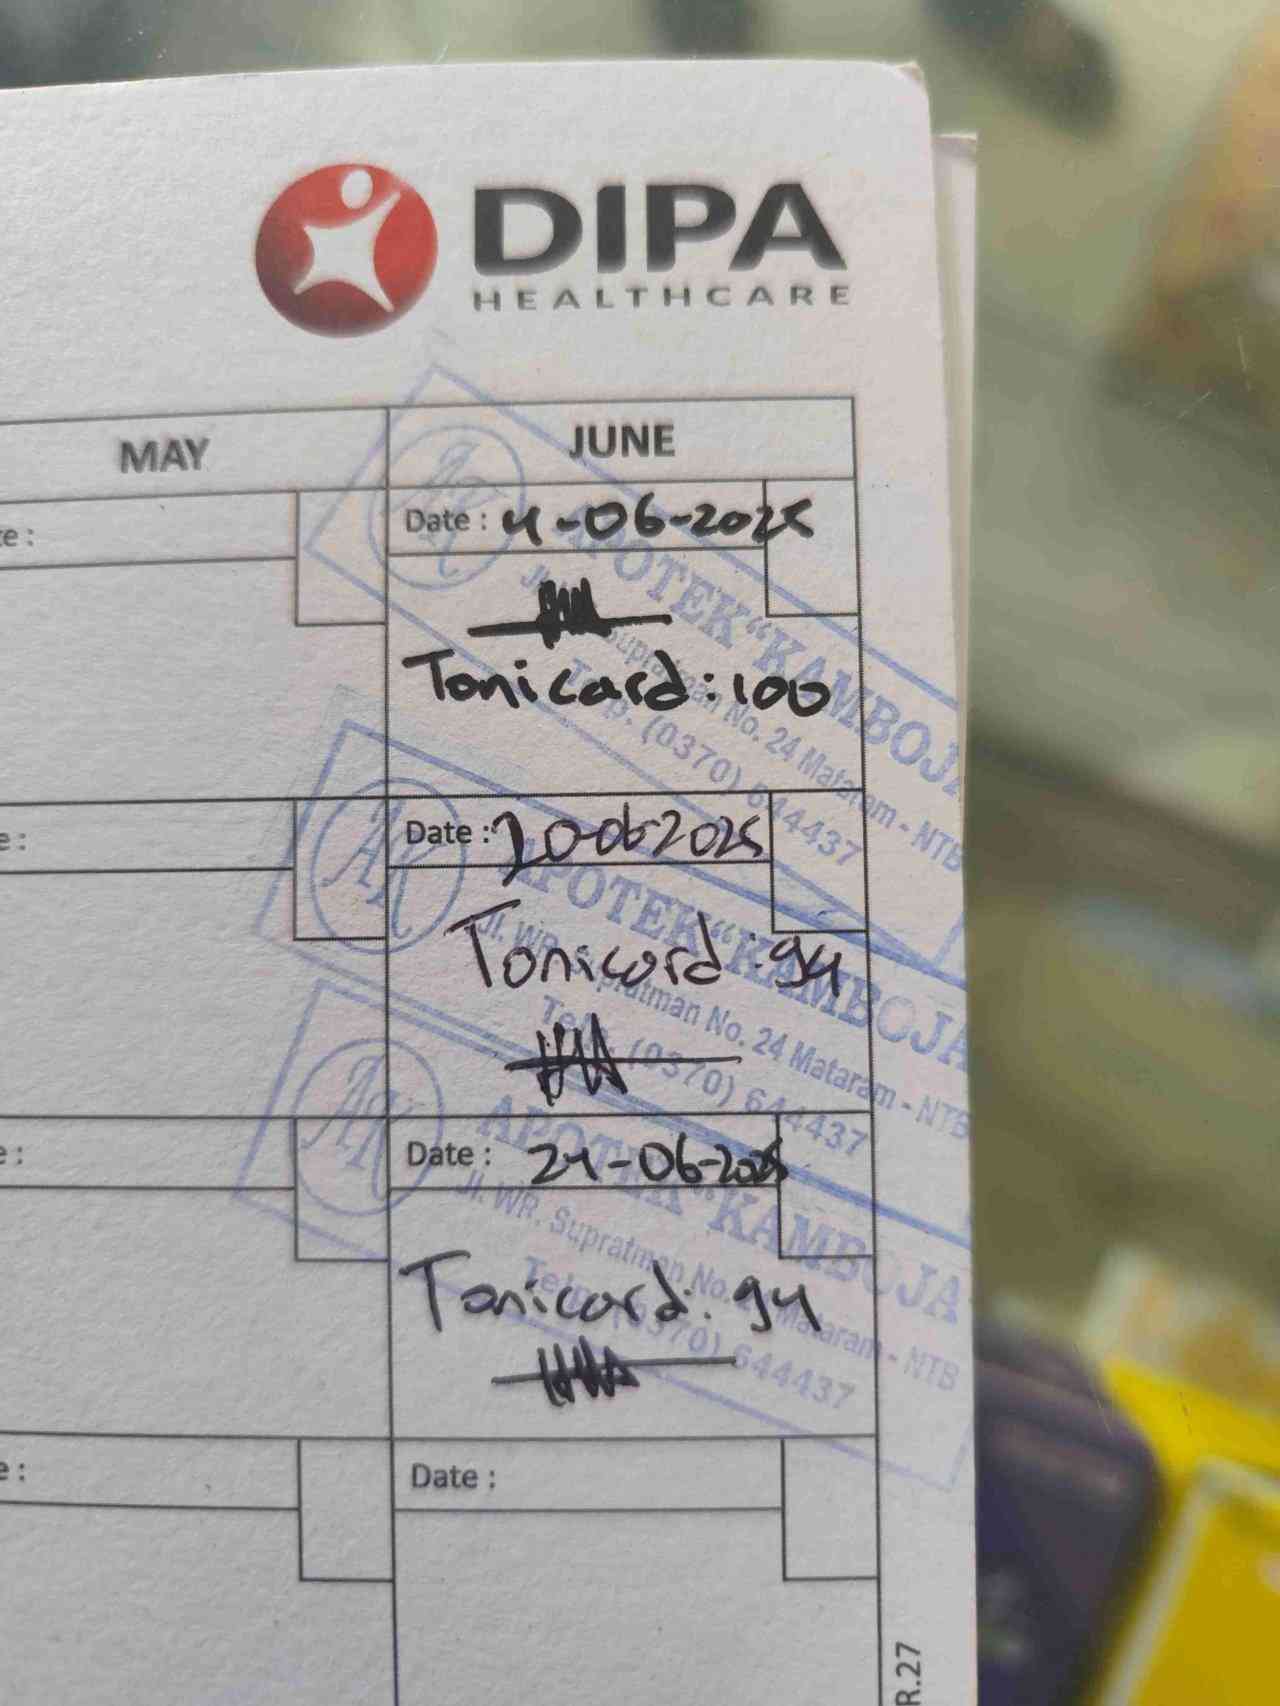 DIPA
HEALTHCARE
MAY
JUNE
Date : 4-06-2025
Tonicard : 100
APOTEK "KAMBOJA
Supratman No. 24 Mataram - NTB
Telp. (0370) 644437
Date : 20-06-2025
Tonicard : 94
AK
APOTEK "KAMBOJA
Jl. WR. Supratman No. 24 Mataram - NTB
Telp. (0370) 644437
Date : 24-06-2025
Tonicard : 94
AK
APOTEK "KAMBOJA
Jl. WR. Supratman No. Mataram - NTB
Telp. (0370) 644437
Date :
R.27